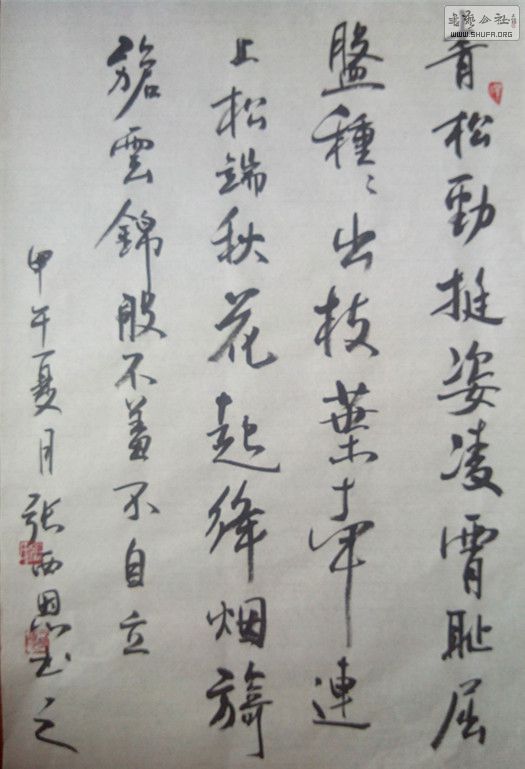 書藝公社
WWW.SHUFA.ORG
青松勁挺姿凌霄耻屈
盤種々出枝葉牽連
上松端秋花起絳烟旖
旎雲錦殷不羞不自立
甲午夏月張西恩书之